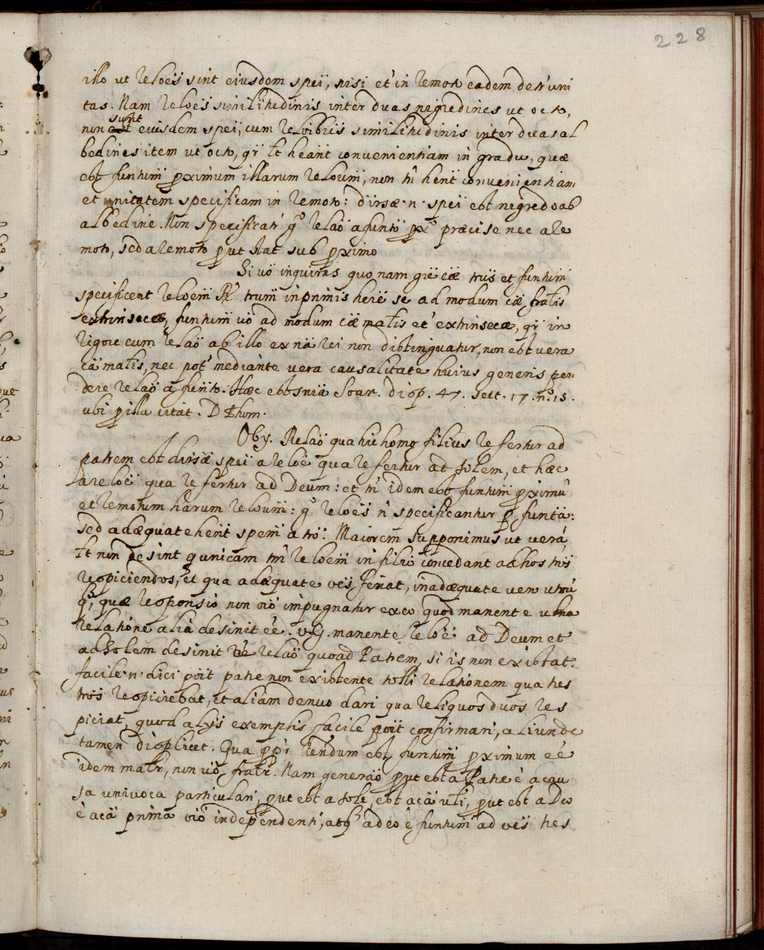 228
illo ut reloës sint eiusdem speï, nisi et in remoto eadem detur uni
tas. Nam reloes similitudinis inter duas negredines ut octo,
non sunt eiusdem speï, cum reloibus similitudinis inter duas al
bedines item ut octo, qr lt heant convenientiam in gradu, quæ
est funtum proximum illarum reloum, non tn hent convenientiam
et unitatem specificam in remoto: diversæ n. speï est negredo ab
albedine. Non specificat gº relaö a funto prox præcise nec a re
moto, sed a remoto prout stat sub proximo
Si vö inquiras quonam gïe cæ trus et funtum
specificent reloem Rr trum inprimis here se ad modum cæ fralis
extrinsecæ, funtum vö ad modum cæ matis et extrinsecæ, qr in
rigore cum relaö ab illo ex na rei non distinguatur, non est vera
ca matis, nec pot mediante vera causalitate huius generis pen
dere relaö a funto. Hæc est sniä Soar. disp. 47. sect. 17. nº. 15.
ubi p illa citat. D Thom.
Obj. Relaö qua hic homo filius refertur ad
patrem est diversæ speï a reloë qua refertur ad solem, et hæc
a reloë qua refertur ad Deum: et tn idem est funtum proximu
et remotum harum reloum: gº reloës n specificantur p funta:
sed adæquate hent spem a tro. Maiorem supponimus ut verá
lt non desint qunicam tn reloem in filio concedant ad hos tres
respiciendos, et qua adæquate
gº, quæ responsio non vö impugnatur ex eo quod manente una
relatione alia desinit eë. v.g. manente reloë ad Deum et
ad solem desinit eë relaö quoad Patrem, si is non existat.
facile n. dici poït patre non existente tolli relationem qua tres
tros respiciebat, et aliam denuo dari qua reliquos duos res
piciat, quod alijs exemplis facile poït confirmari, aliunde
tamen displicet. Qua ppr dicendum est, funtum proximum eë
idem matr, non vö fratr. Nam generaö put est a Patre è a cau
sa univoca particulari, put est a sole, est a cä uli, put est a Deo
è a cä prima vö independenti, atq adeo è funtum ad veï tres